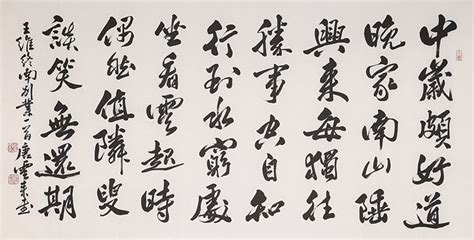 中歲頗好道
晚家南山陲
興來每獨往
勝事空自知
行到水窮處
坐看雲起時
偶然值隣叟
談笑無還期
王維終南別業一首唐雲来書